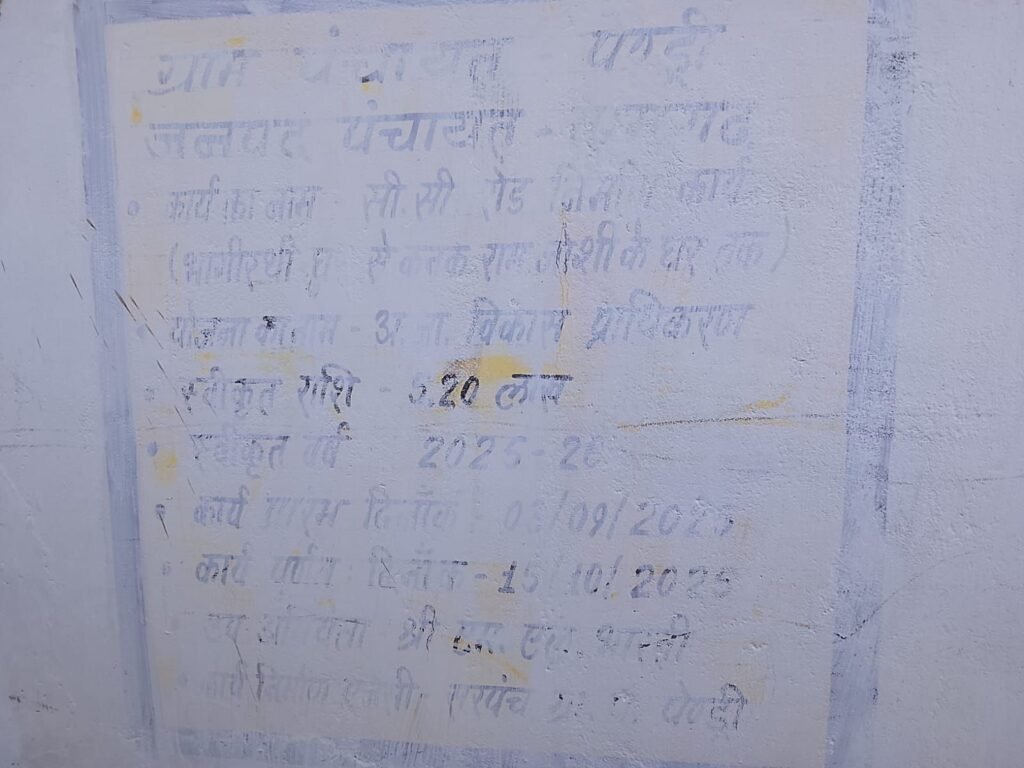 ग्राम पंचायत -
जनपद पंचायत -
• कार्य का नाम सी.सी. रोड निर्माण कार्य
(भागीरथी से कनक राम जोशी के घर तक)
• योजना का नाम - अ.जा. विकास प्राधिकरण
• स्वीकृत राशि - 5.20 लाख
• स्वीकृत वर्ष 2025-26
• कार्य प्रारंभ दिनाँक - 03/09/2025
• कार्य दिनाँक - 15/10/2025
• उप अभियंता श्री एम. एल. भारती
• कार्य निर्माण एजेंसी सरपंच ग्रा. पं. पेण्ड्री